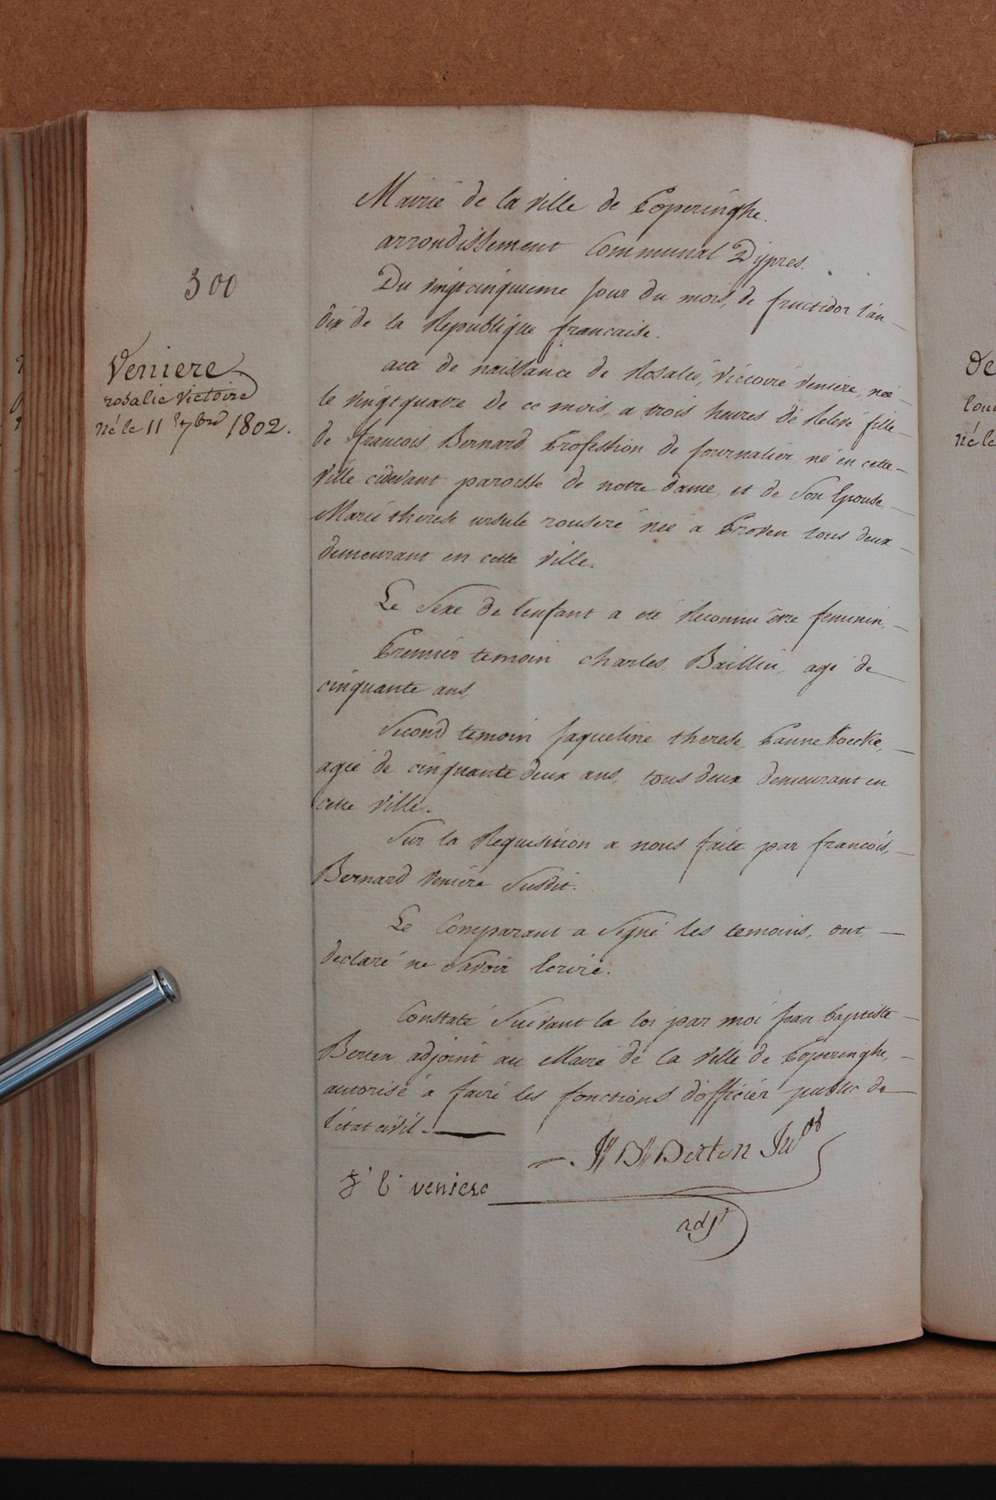 Mairié de la ville de Poperinghe.
arrondissement Communal Dypres.
300
Du vingtcinquieme jour du mois, de fructidor l'an
dix de la Republique francaise.
Veniere
rosalie victoire
né le 11 7bre 1802.
acte de naissance de Rosalie, Victoire Veniere, née
le vingtquatre de ce mois, a trois heures de Relevé fille
de francois, Bernard, Profession de Journalier né en cette
ville cidevant paroisse de notre dame, et de Son Epouse
Marie therese ursule rouseré née a Proven tous deux
demeurant en cette ville.
Le Sexe de l'enfant a eté Reconnu être feminin,
Premier temoin charles, Baillieu, agé de
cinquante ans,
Second temoin Jaqueline therese,
agée de cinquante deux ans, tous deux demeurant en
cette ville.
Sur la Requisition a nous faite par francois,
Bernard Veniere Susdit.
Le Comparant a Signé les temoins, ont
declaré ne Savoir Ecrire.
Constaté Suivant la loi par moi Jean baptiste
Berten adjoint au Maire de la ville de Poperinghe,
autorisé a faire les fonctions d'officier public de
l'état civil.
Berten
f b veniere
adjt
De
loui
né le